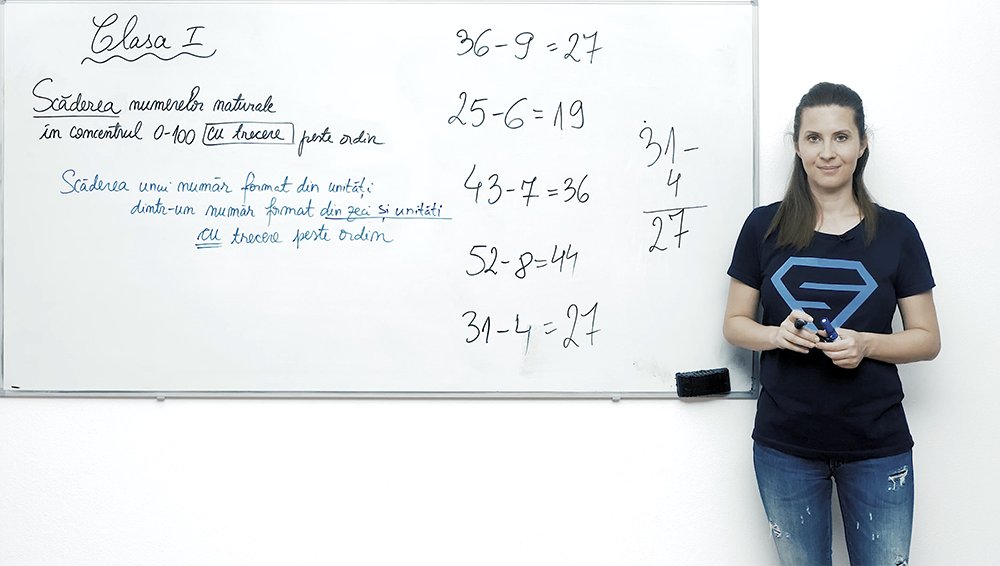 Clasa I
Scăderea numerelor naturale
în concentrul 0-100 cu trecere peste ordin
Scăderea unui număr format din unități
dintr-un număr format din zeci și unități
cu trecere peste ordin
36-9=27
25-6=19
43-7=36
52-8=44
31-4=27
31-
4
27